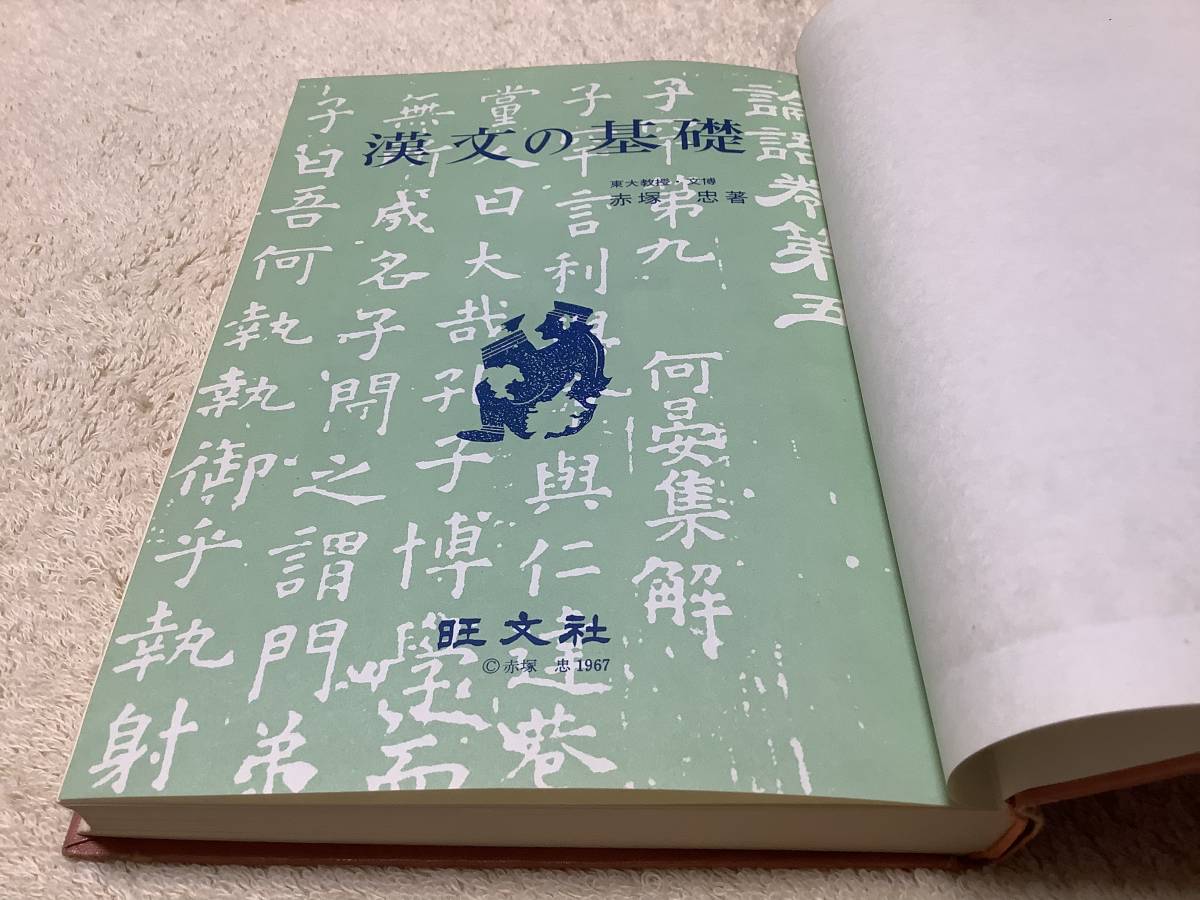 漢文の基礎
東大教授・文博
赤塚 忠著
旺文社
©赤塚 忠 1967
論語卷第五
子罕第九 何晏集解
子罕言利與 與仁達巷
黨人曰大哉孔子博學而
無所成名子聞之謂門弟
子曰吾何執執御乎執射